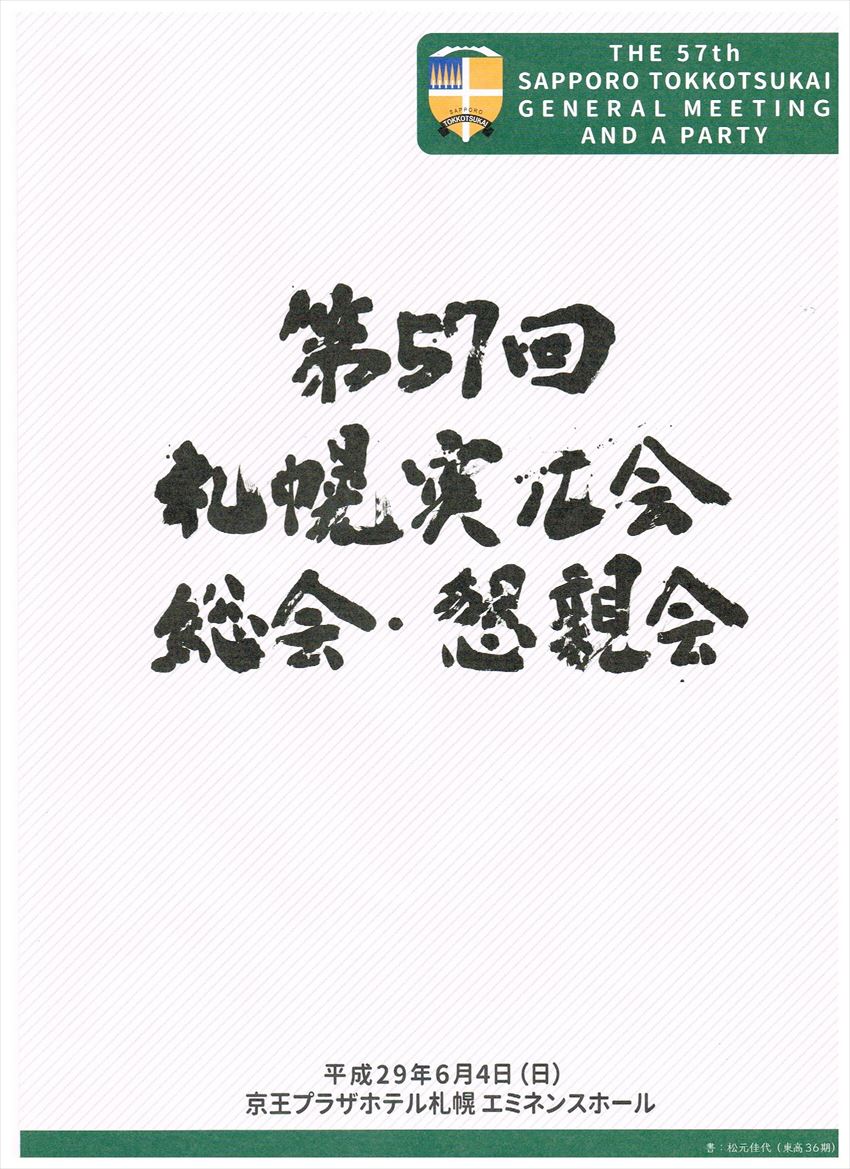 THE 57th
SAPPORO TOKKOTSUKAI
GENERAL MEETING
AND A PARTY
SAPPORO
TOKKOTSUKAI
第57回
札幌突兀会
総会・懇親会
平成29年6月4日（日）
京王プラザホテル札幌 エミネンスホール
書：松元佳代（東高36期）